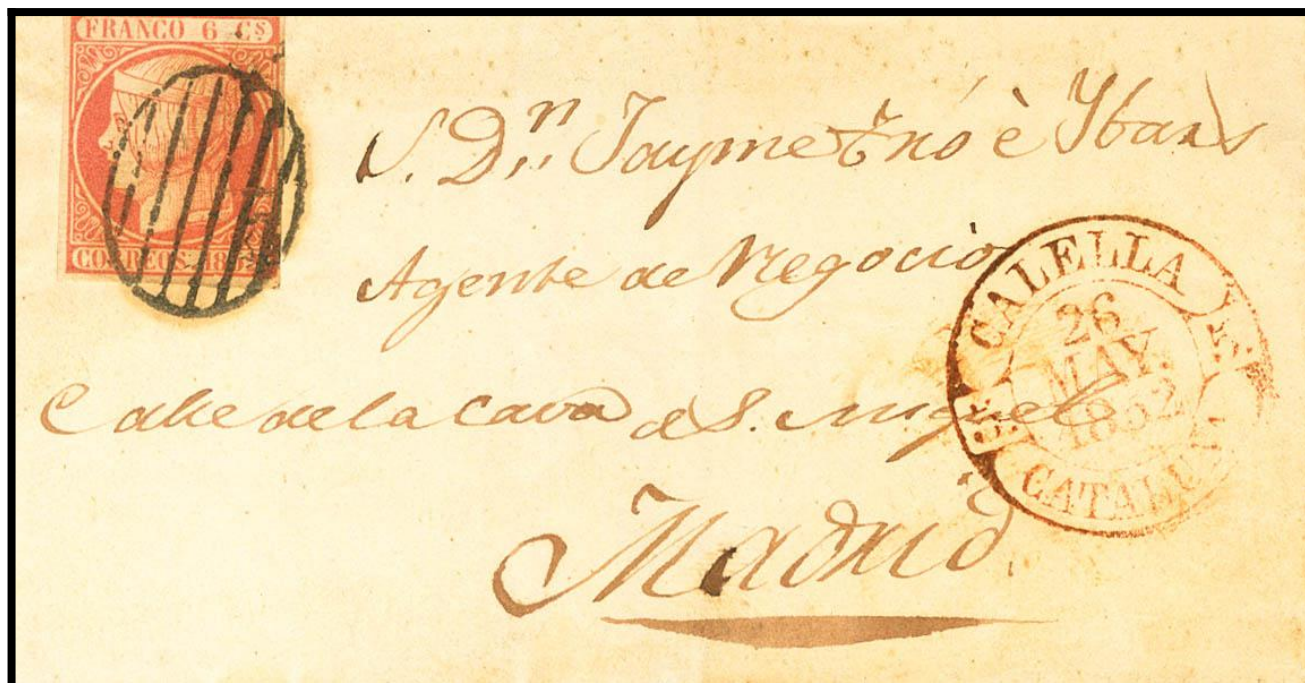 FRANCO 6 Cs
CORREOS. 18
S. Dn Jayme è Ybars
Agente de Negocios
Calle de la Cava de S. Miguel
Madrid.
CALELLA
26
MAY.
1852
CATALUÑ